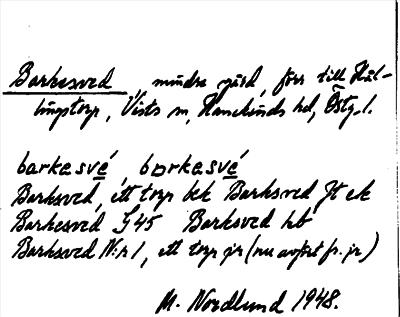 Barkesved, mindre gård, förr till Häl-
lingstorp, Vists sn, Hanekinds hd, Östg. l.
barkasvé, borkasvé
Barksved, ett torp bek Barksved Jt ek
Barkesved G45 Barksved hb
Barksved N:r 1, ett torp (nu avfört fr. jr)
M. Nordlund 1948.